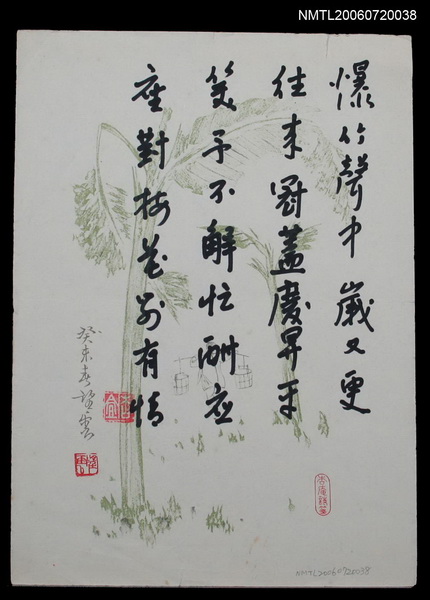 NMTL20060720038
爆竹聲中歲又更
往來冠蓋慶昇平
笑予不解忙酬应
座對梅花別有情
癸未春
NMTL20060720038